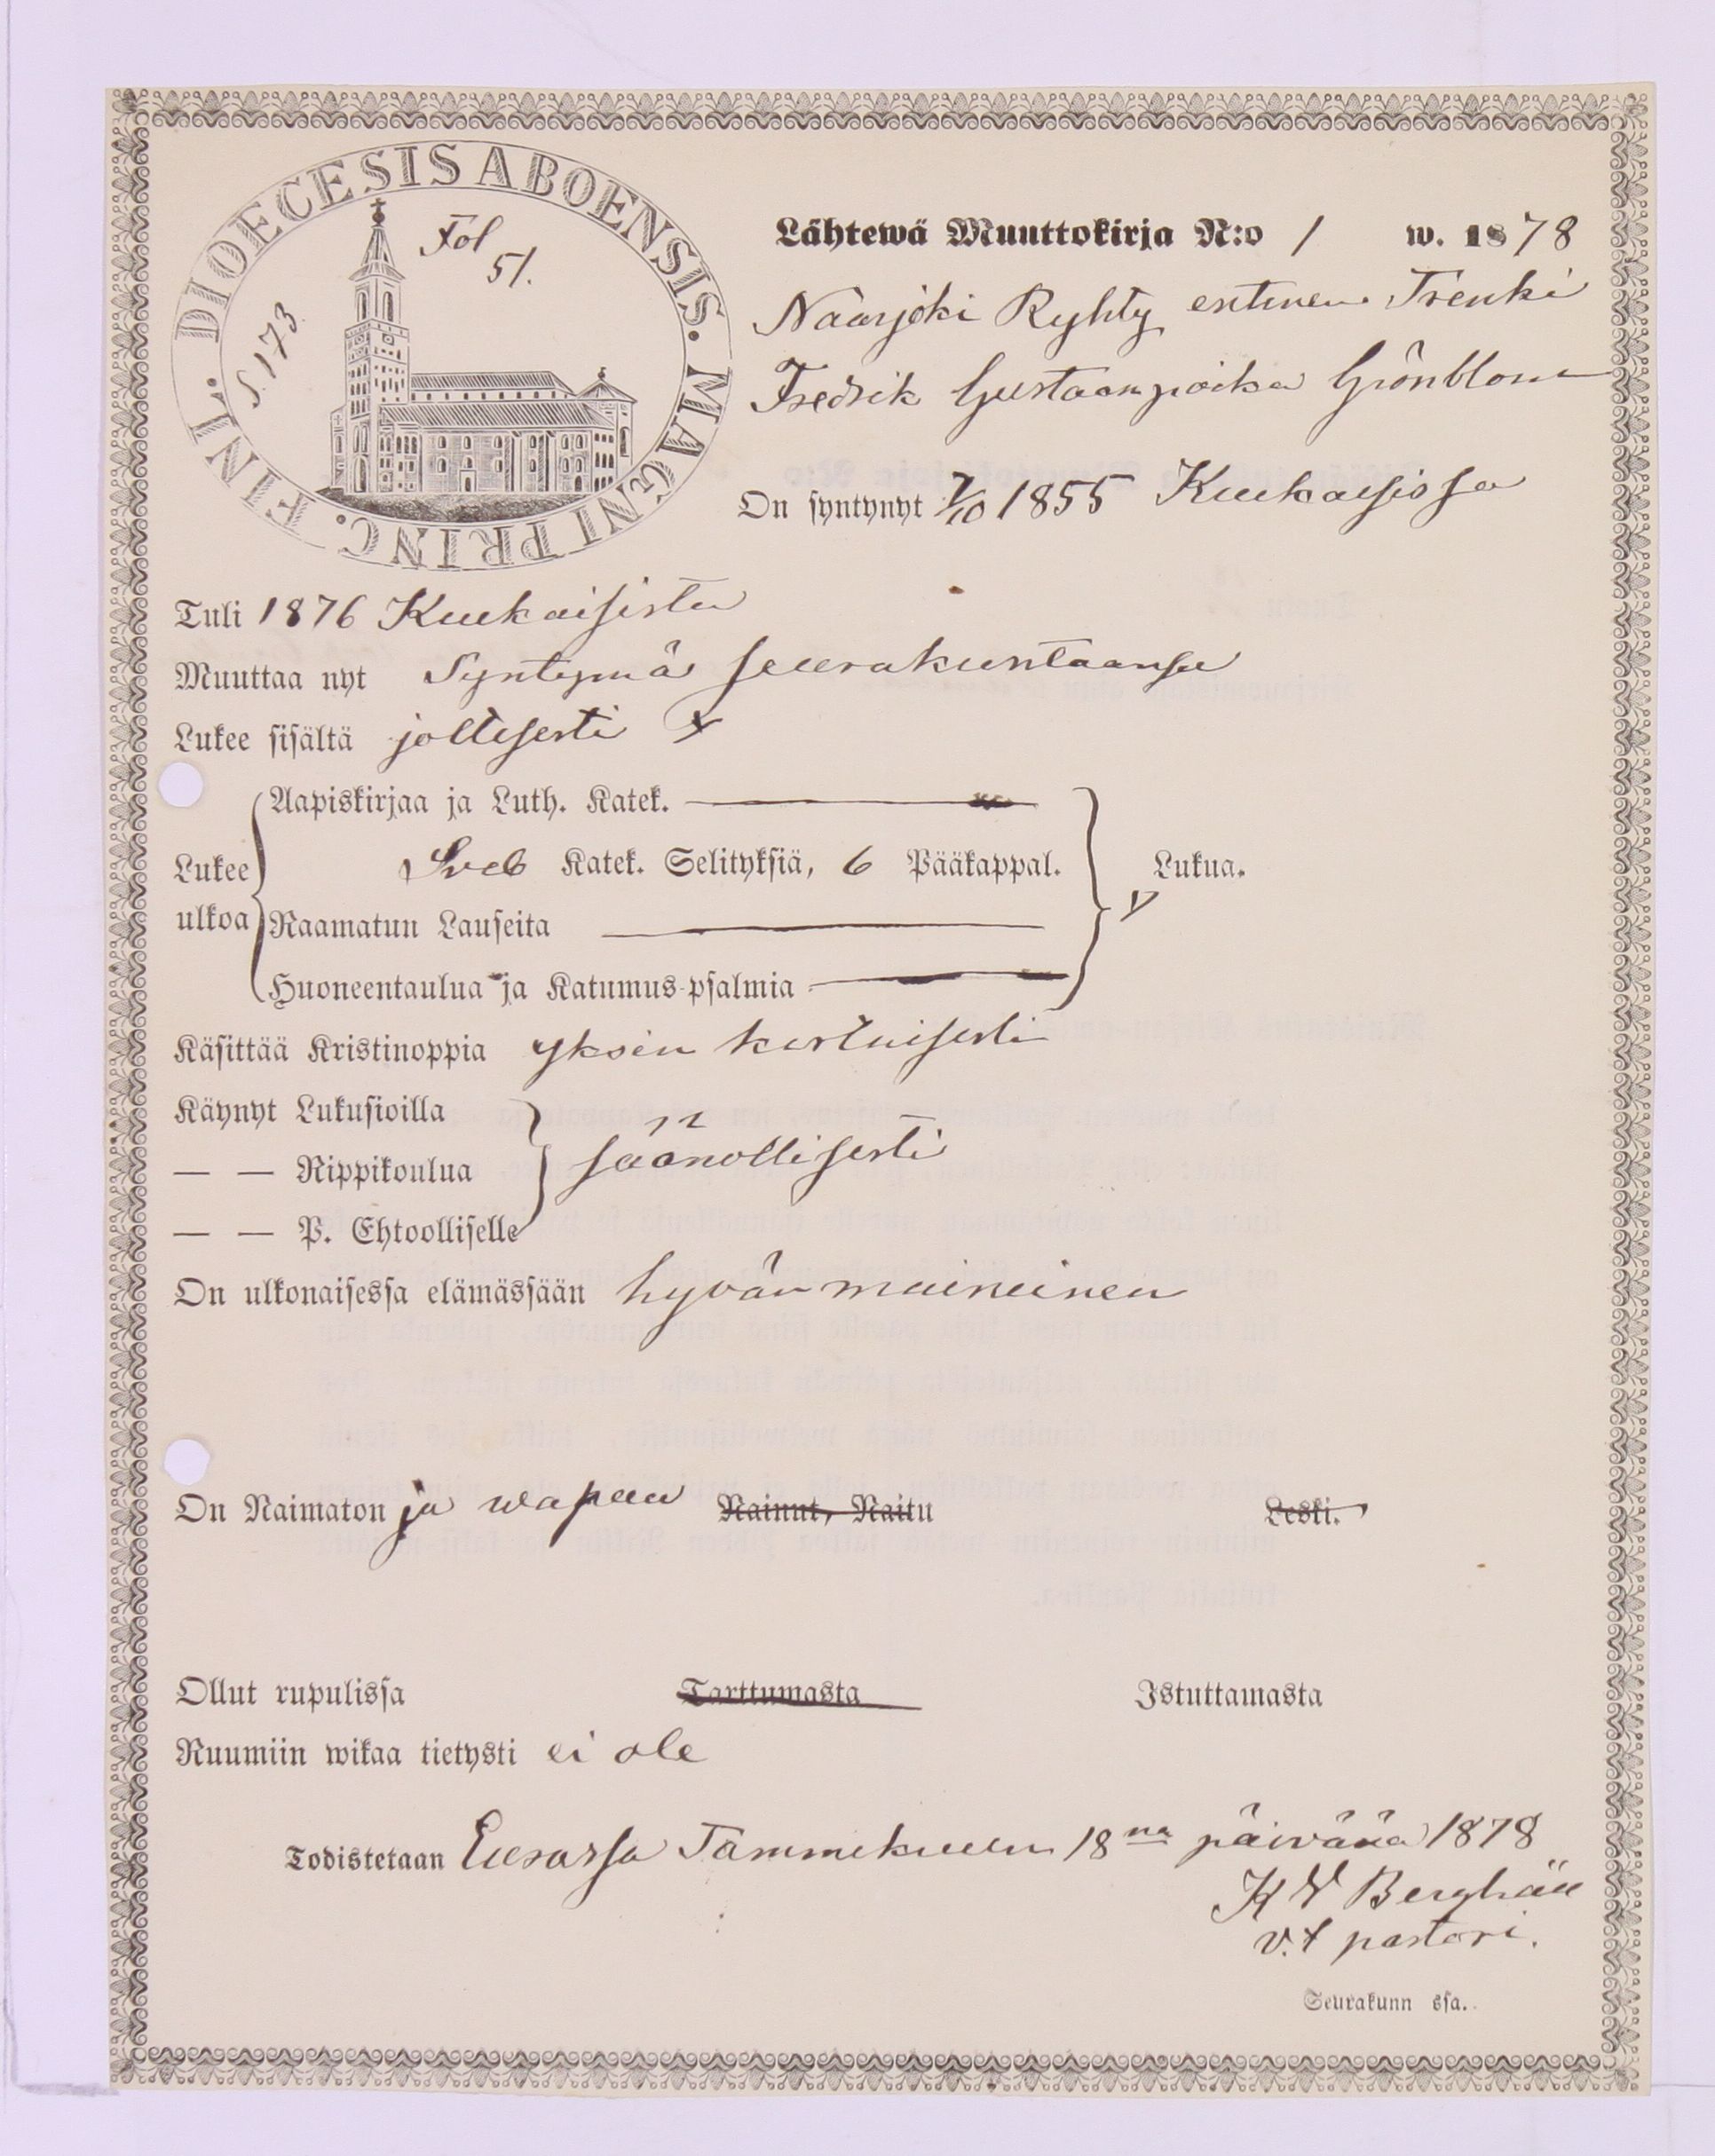 DIOECESIS ABOENSIS. MAGNI PRINC. FINL.
Fol
51.
S. 173
Lähtewä Muuttokirja N:o 1 w. 1878
Naarjoki Ryhty entinen Trenki
Fredrik Gustaanpoika Grönblom
On syntynyt 7/10 1855 Kuukaisissa
Tuli 1876 Kuukaisista
Muuttaa nyt Syntymä seurakuntaansa
Lukee sisältä joltisesti x
Aapiskirjaa ja Luth. Katek.
Lukee ulkoa Sveb Katek. Selityksiä, 6 Pääkappal. Lukua.
Raamatun Lauseita
Huoneentaulua ja Katumus-psalmia
Käsittää Kristinoppia yksin kertaisesti
Käynyt Lukusioilla
— — Rippikoulua säänollisesti
— — P. Ehtoolliselle
On ulkonaisessa elämässään hyvän maineinen
On Naimaton ja wapaa Nainut, Naitu Leski.
Ollut rupulissa Tarttumasta Istuttamasta
Ruumiin wikaa tietysti ei ole
Todistetaan Eurassa Tammekuun 18na päivänä 1878
K W Berghäll
v.t pastori.
Seurakunn ssa.